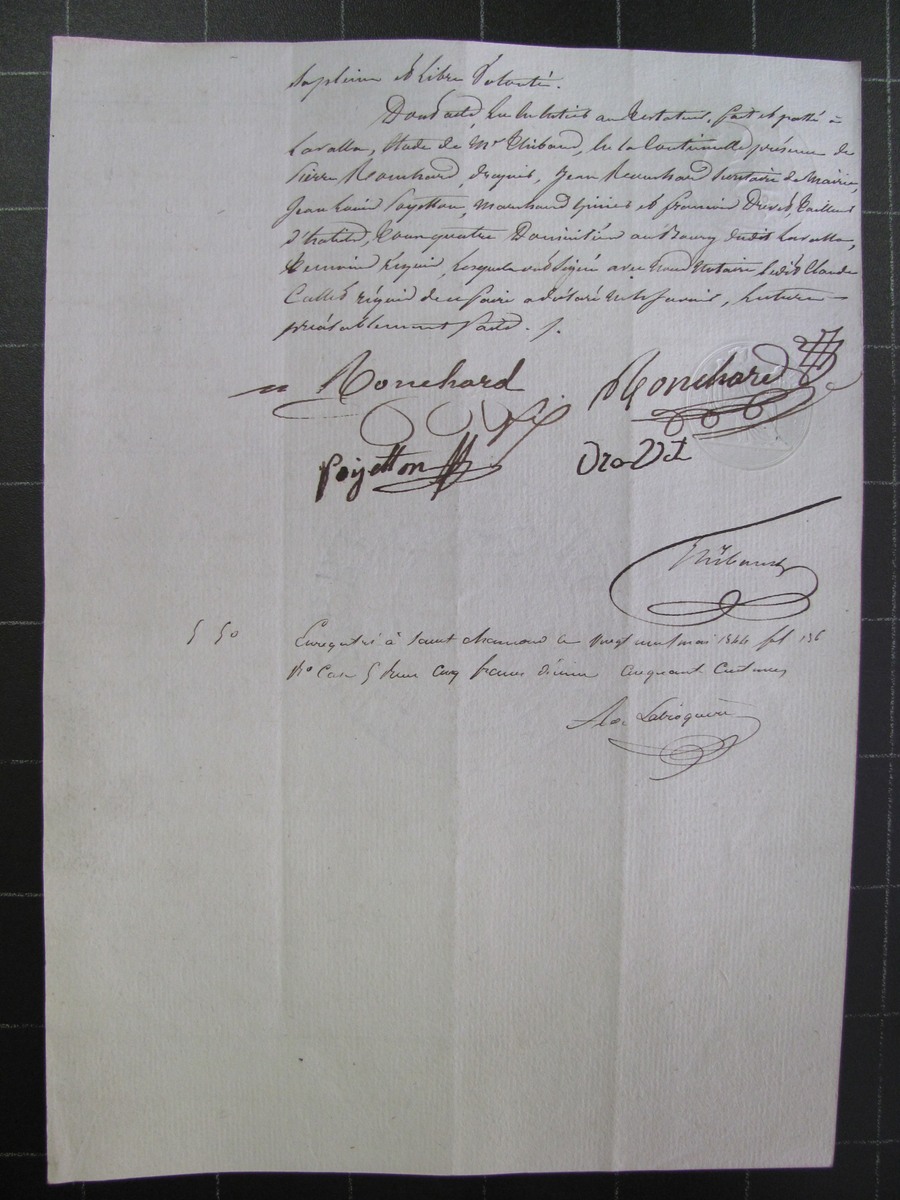 sa pleine et libre volonté.
Dont acte, lu en entier au testateur, fait et passé à
Lavalla, Etude de Mr Thibaud, en la Continuelle présence de
Pierre Ronchard, Jean Ronchard Secrétaire de Mairie,
Jean Louis Poyetton, Marchand Epicier et françois Drevet, Tailleur
d'habits, tous quatre Domiciliés au Bourg dudit Lavalla,
témoins requis, lesquels ont signé avec nous Notaire, ledit Claude
requis de ce faire a déclaré ne le savoir, lecture
préalablement faite. /.
Ronchard Ronchard
Poyetton Drevet
Thibaud
5 50 Enregistré à Saint Chamond le vingt neuf mai 1844 fol 136
Vo Case 5 cinq francs décime Cinquante Centimes